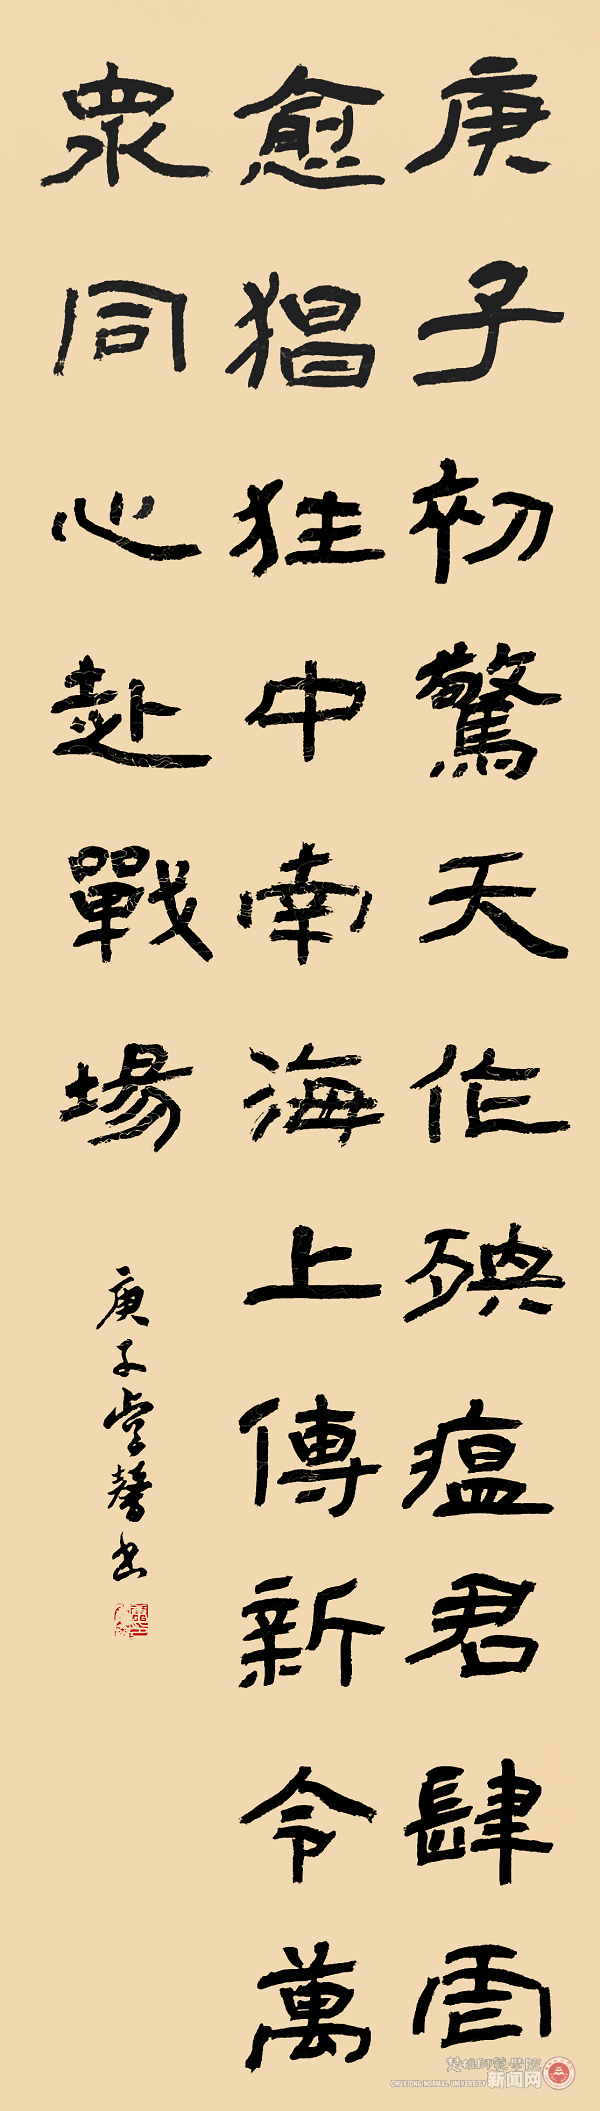 庚子初驚天作殃瘟君肆虐
愈猖狂中南海上傳新令萬
眾同心赴戰場
庚子 馨書
楚雄師範學院
CHUXIONG NORMAL UNIVERSITY
新闻网